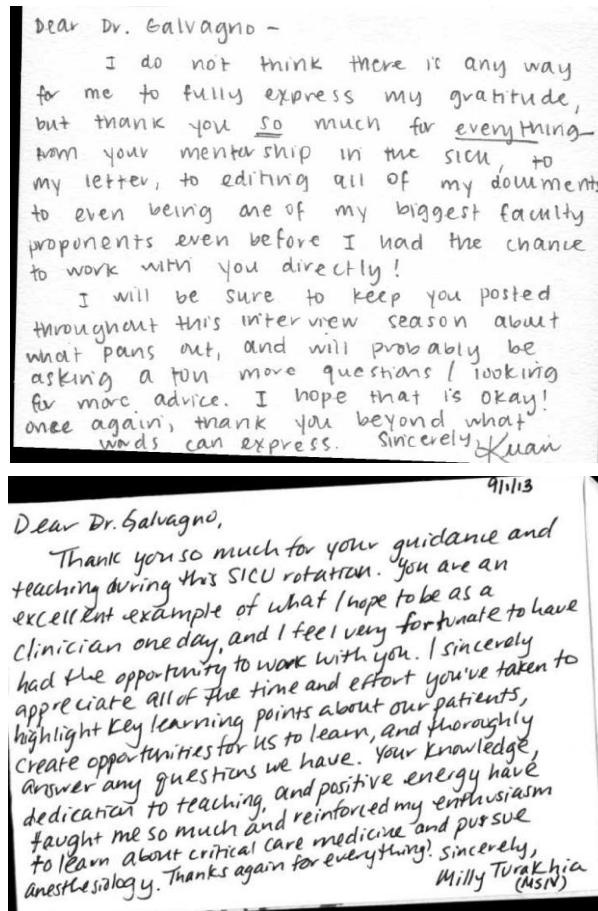 Dear Dr. Galvagno –
I do not think there is any way
for me to fully express my gratitude,
but thank you so much for everything–
from your mentorship in the SICU, to
my letter, to editing all of my documents
to even being one of my biggest faculty
proponents even before I had the chance
to work with you directly!
I will be sure to keep you posted
throughout this interview season about
what pans out, and will probably be
asking a ton more questions / looking
for more advice. I hope that is okay!
once again, thank you beyond what
words can express. Sincerely,
9/1/13
Dear Dr. Galvagno,
Thank you so much for your guidance and
teaching during this SICU rotation. You are an
excellent example of what I hope to be as a
clinician one day, and I feel very fortunate to have
had the opportunity to work with you. I sincerely
appreciate all of the time and effort you've taken to
highlight key learning points about our patients,
create opportunities for us to learn, and thoroughly
answer any questions we have. Your knowledge,
dedication to teaching, and positive energy have
taught me so much and reinforced my enthusiasm
to learn about critical care medicine and pursue
anesthesiology. Thanks again for everything! Sincerely,
Milly Turakhia
(MSIV)